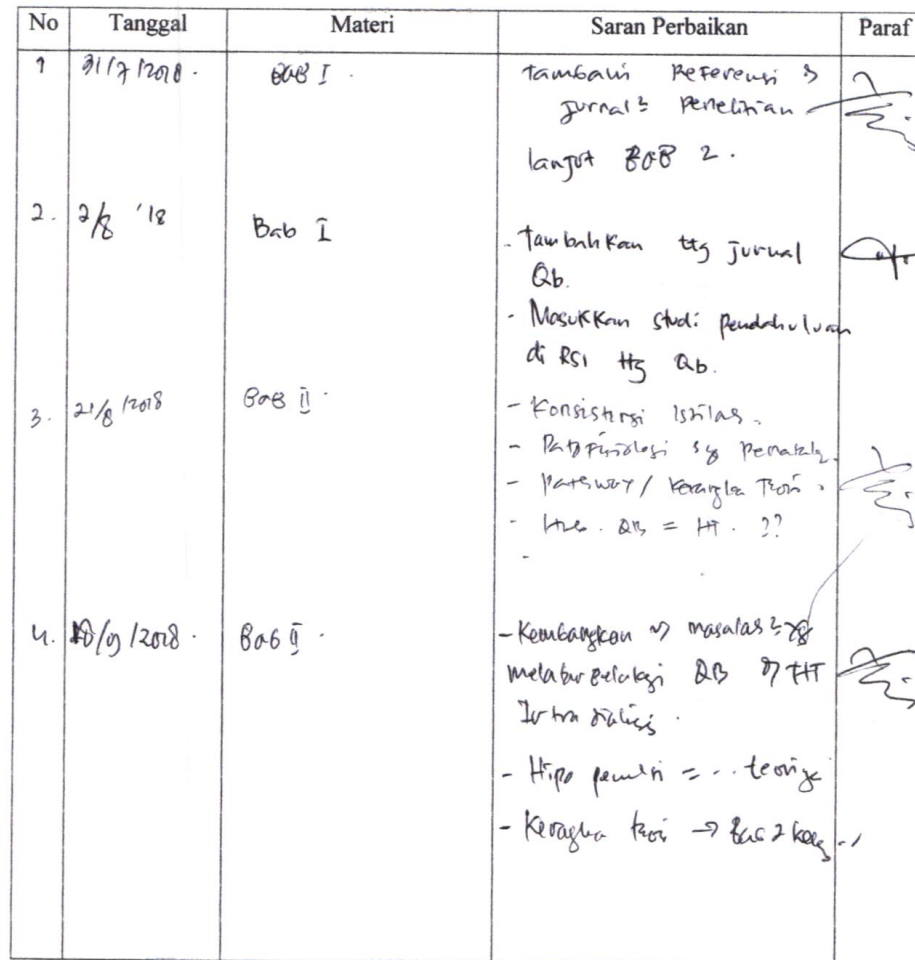 No Tanggal Materi Saran Perbaikan Paraf
1 31/7/2018. BAB I. Tambahi Referensi
jurnal² Penelitian
lanjut BAB 2.
2. 2/8 '18 Bab I
- Tambahkan ttg jurnal
Qb.
- Masukkan studi pendahuluan
di RSI ttg Qb.
3. 21/8/2018 BAB II. - Konsistensi Istilah.
- Patofisiologi
- Pathway / Kerangka Teori.
- Hub. QB = HT. ??
-
4. /9/2018. Bab II. - Kembangkan masalah²
melatarbelakangi QB HT
Intra dialisis.
- Hipo = ..
- Kerangka teori → Bab 2